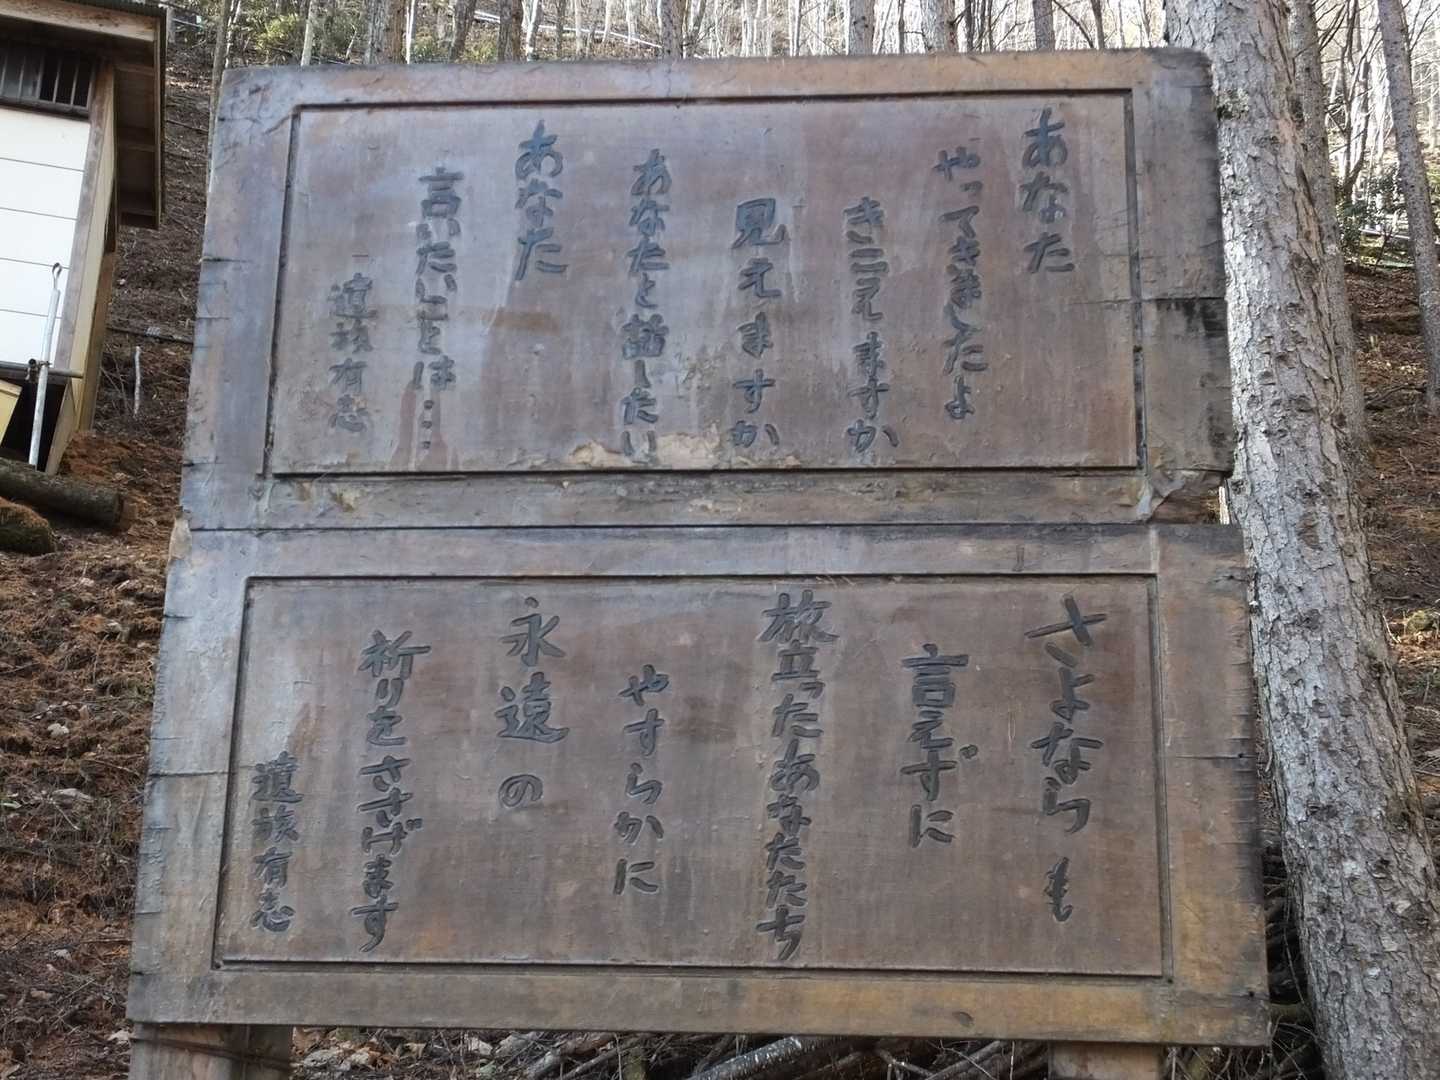 あなた
やってきましたよ
きこえますか
見えますか
あなたと話したい
あなた
言いたいことは…
遺族有志
さよならも
言えずに
旅立ったあなたたち
やすらかに
永遠の
祈りをささげます
遺族有志